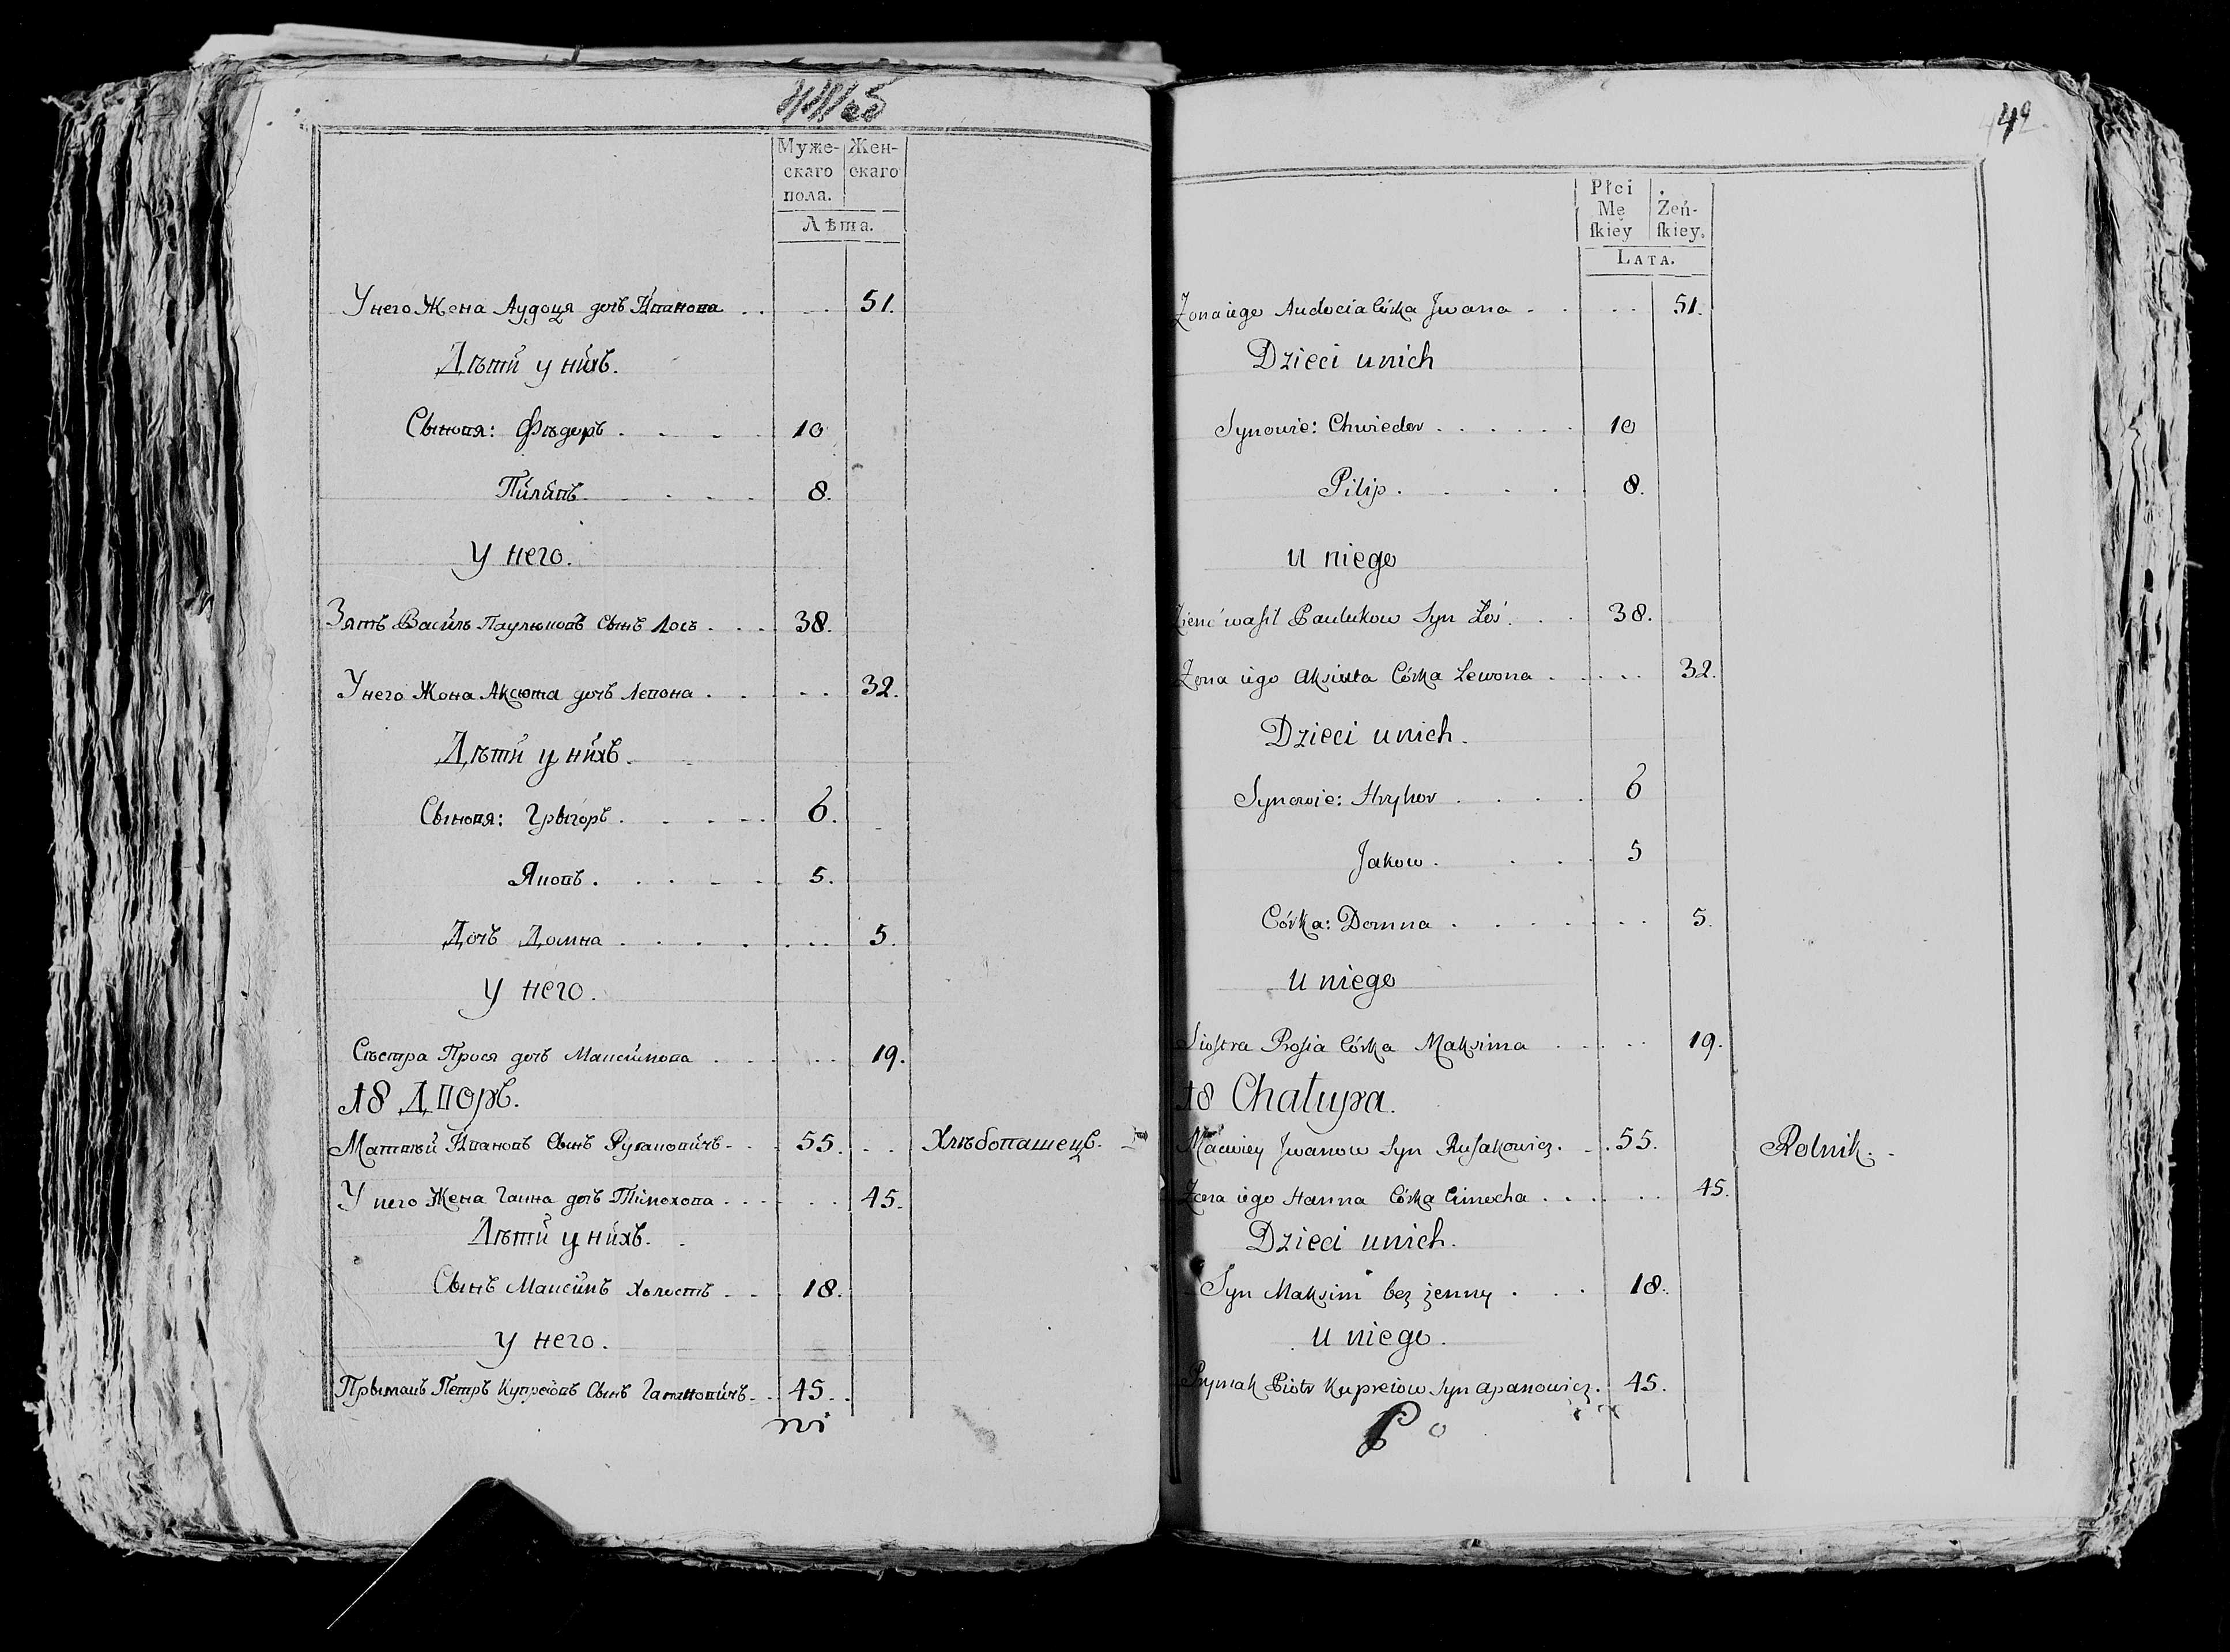 Муже-
скаго
пола.
Жен-
скаго
Лѣта.
У него Жена Аудоця дочь Иванова . . . . 51.
Дѣти у нихъ.
Сыновя: Фѣдоръ . . . . 10
Пилипъ . . . . 8.
У него.
Зять Василь Паулюковъ Сынъ Лось . . . 38.
У него Жона Аксюта дочь Левона . . . . 32.
Дѣти у нихъ.
Сыновя: Грыгоръ . . . . 6.
Яковъ . . . . 5.
Дочь Домна . . . . 5.
У него.
Сѣстра Прося дочь Максимова . . . . 19.
18 Дворъ.
Матвѣй Ивановъ Сынъ Русаковичъ - . . 55. . . Хлѣбопашецъ.
У него Жена Ганна дочь Тимохова . . . . 45.
Дѣти у нихъ.
Сынъ Максимъ Холостъ . . . 18.
У него.
Прымакъ Петръ Купрѣіовъ Сынъ Гапановичъ . . 45.
42.
Płci
Mę
ſkiey
Żeń-
ſkiey.
LATA.
Zona iego Audocia Córka Jwana . . . . 51.
Dzieci unich
Synowie: Chwiedor . . . . . . 10
Pilip . . . . 8.
U niego
Zienć waſil Paulukow Syn Łoś . . . 38.
Zona iego Aksiuta Córka Lewona . . . . 32.
Dzieci unich.
Synowie: Hryhor . . . . 6
Jakow . . . . 5
Córka: Domna . . . . . . 5.
U niego
Sioſtra Proſia Córka Maksima . . . . 19.
18 Chałupa.
Maciwiey Jwanow Syn Ruſakowicz. - . 55. Rolnik. -
Zona iego Hanna Córka Cimocha . . . . . 45.
Dzieci unich.
Syn Maksim bez żenny . . . 18.
U niego.
Prymak Piotr Kupreiow Syn Apanowicz. 45.